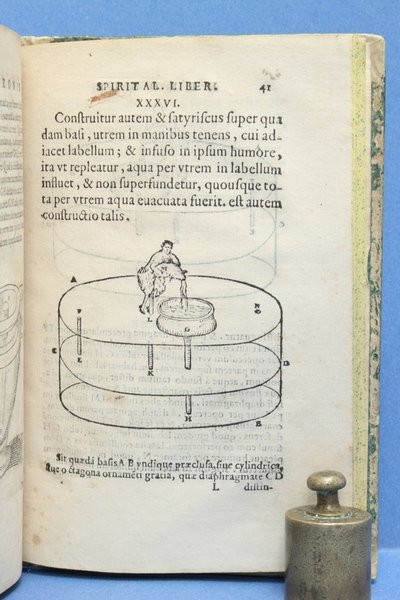 SPIRITAL. LIBER. 41
XXXVI.
Construitur autem & satyriscus super qua
dam basi, vtrem in manibus tenens, cui ad-
iacet labellum; & infuso in ipsum humore,
ita vt repleatur, aqua per vtrem in labellum
influet, & non superfundetur, quousque to-
ta per vtrem aqua euacuata fuerit. est autem
constructio talis.
A
F
L
G
C
E
K
D
H
B
Sit quædā basis A B vndique præclusa, siue cylindrica,
siue octagona ornamēti gratia, quæ diaphragmate C D
L distin-